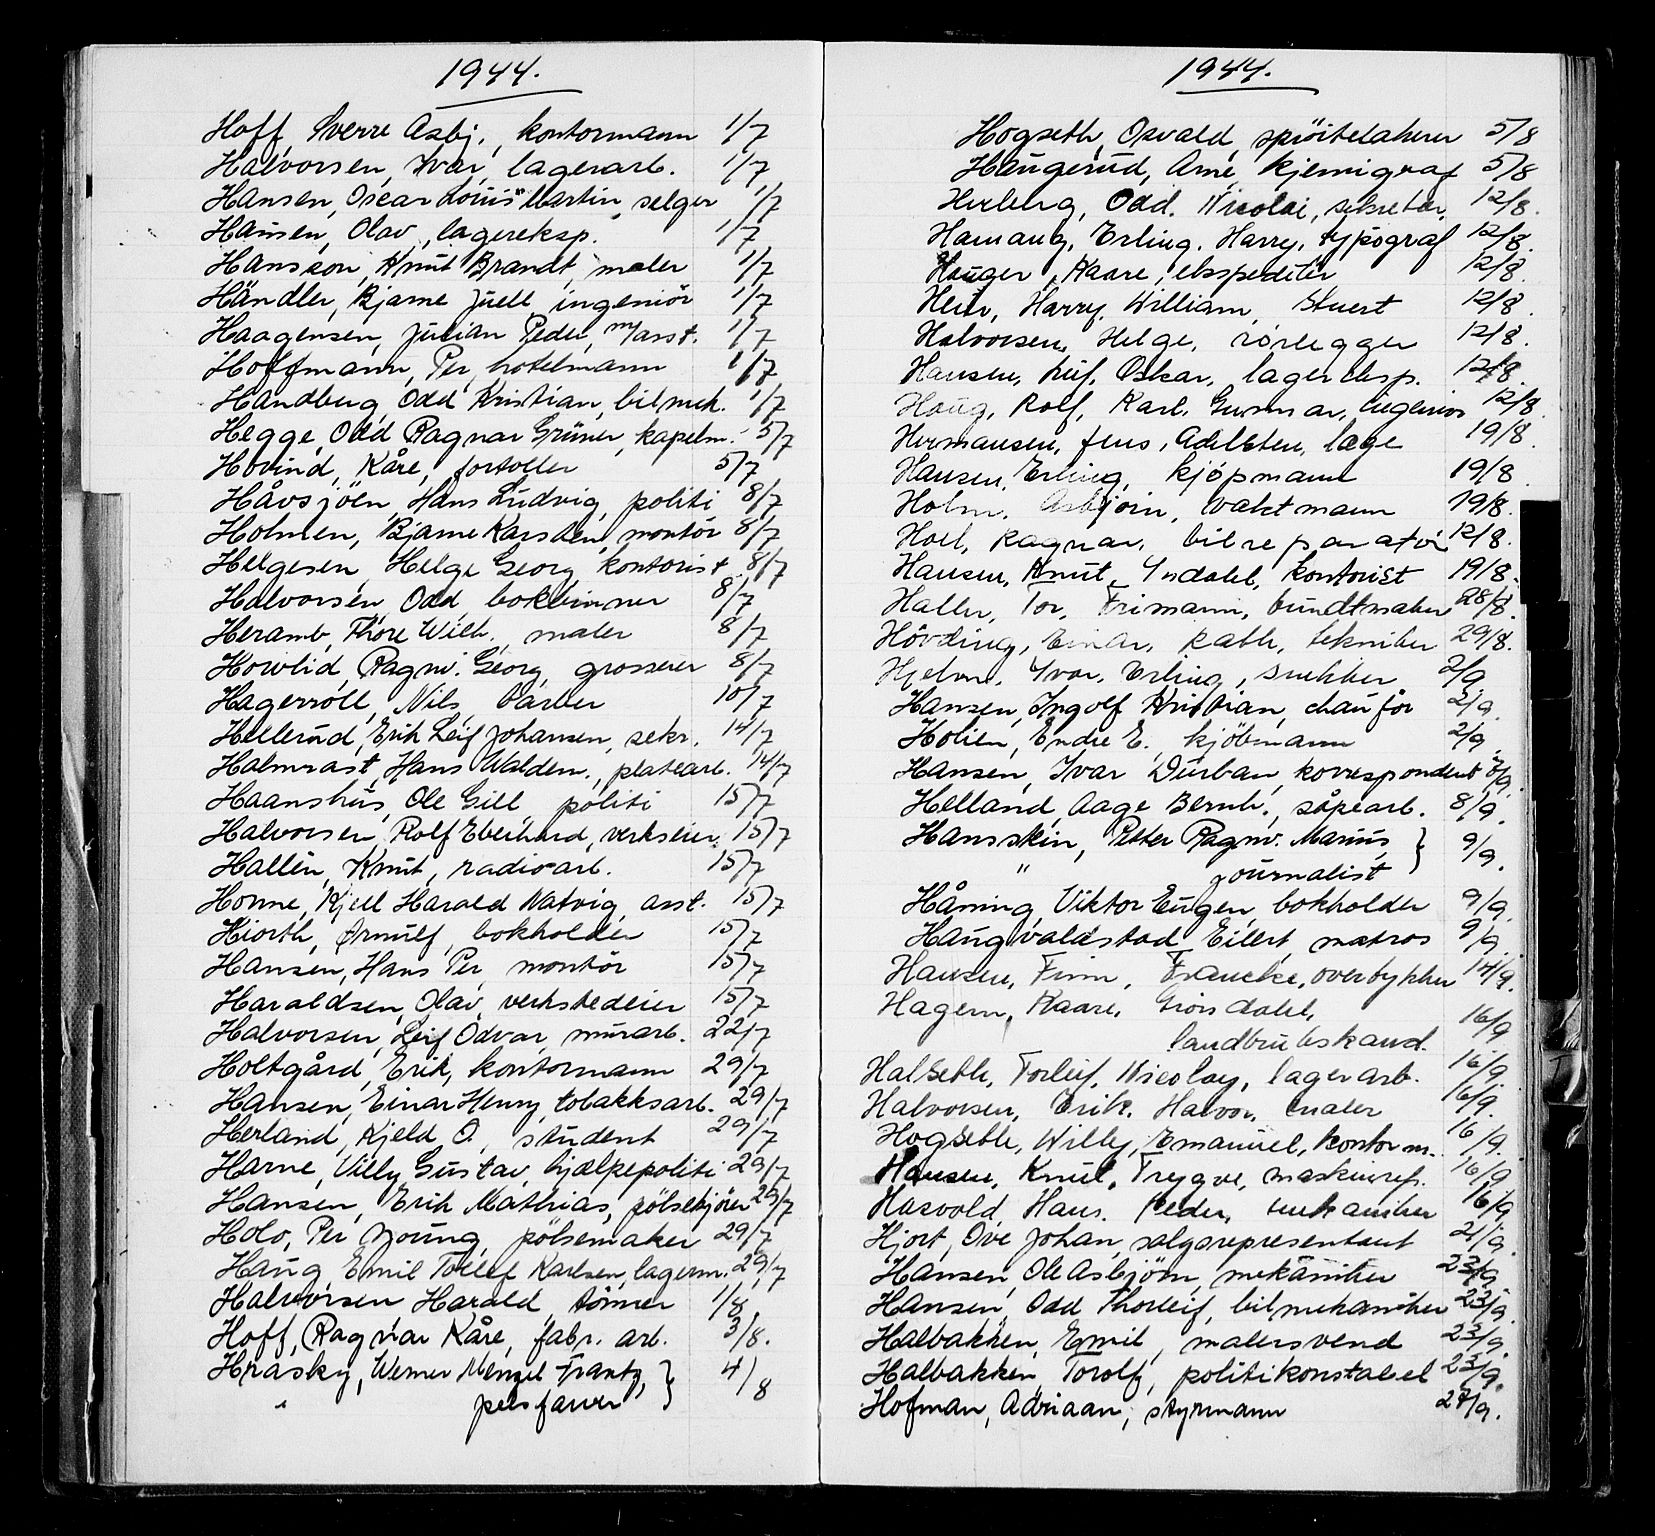 1944.
Hoff, Sverre Asbj., kontormann 1/7
Halvorsen, Ivar, lagerarb. 1/7
Hansen, Oscar Louis Martin, selger 1/7
Hansen, Olav, lagereksp. 1/7
Hansson, Knut Brandt, maler 1/7
Händler, Bjarne Juell ingeniör 1/7
Haagensen, Julian Peder, m/asst. 1/7
Hoffmann, Per, hotelmann 1/7
Handberg, Odd Kristian, bilmek. 1/7
Hegge, Odd Ragnar Grüner, kapelm. 5/7
Hovind, Kåre, fortoller 5/7
Håvsjöen, Hans Ludvig, politi 8/7
Holmen, Bjarne Karsten, montör 8/7
Helgesen, Helge Georg, kontorist 8/7
Halvorsen, Odd, bokbinner 8/7
Heramb, Thore Wilh. maler 8/7
Howlid, Ragnv. Georg, grosserer 8/7
Hagerroll, Nils, barber 10/7
Hellerud, Erik Leif Johansen, sekr. 14/7
Holmrast, Hans Walden., platearb. 14/7
Haanshus, Ole Gill politi 15/7
Halvorsen, Rolf Eberhard, verkseier. 15/7
Hallén, Knut, radioarb. 15/7
Horne, Kjell Harald Natvig, asst. 15/7
Hiorth, Ørnulf, bokholder 15/7
Hansen, Hans Per, montör 15/7
Haraldsen, Olav, verkstedeier 15/7
Halvorsen, Leif Odvar, murarb. 22/7
Holtgård, Erik, kontormann 29/7
Hansen, Einar Henry, tobakksarb. 29/7
Herland, Kjeld O., student 29/7
Harne, Villy Gustav, hjælpepoliti 29/7
Hansen, Erik Mathias, pölsekjörer 29/7
Holo, Per Young, pölsemaker 29/7
Haug, Emil Tollef Karlsen, lagerm. 29/7
Halvorsen Harald tömmer 1/8.
Hoff, Ragnar Kåre, fabr. arb. 3/8.
Hrasky, Werner Menzel Frantz, } 4/8
" pelsfarver
1944.
Hogseth, Osvald, spröitelakerer 5/8
Haugerud, Arne, kjemigraf 5/8
Herberg, Odd. Nicolai, sekretær. 12/8.
Hamang, Erling. Harry, typograf 12/8.
Hauger, Kaare, ekspeditör 12/8.
Heir, Harry. William, Stuert 12/8.
Halvorsen, Helge, rörlegger 12/8.
Hansen, Leif. Oskar, lagereksp. 12/8.
Haug, Rolf, Karl, Gunnar, ingeniör 12/8.
Hermansen, Jens, Adelsten, læge 19/8.
Hansen, Erling, kjöpmann 19/8.
Holm, Asbjörn, vaktmann 19/8.
Hoel, Ragnar, bilreparatör 12/8.
Hansen, Knut, Yndahl, kontorist 19/8.
Haller, Tor, Frimann, buntmaker 28/8.
Hövding, Einar, Rath, tekniker 29/8.
Hjelm, Ivar, Erling, snekker 2/9
Hansen, Ingolf Kristian, chauför 2/9.
Holien, Endre E., kjöbmann 2/9.
Hansen, Ivar Durban, korrespondent /9.
Helland, Aage Bernh., såpearb. 8/9.
Hansskin, Petter Ragnv. Marius, } 9/9.
" journalist
Håning, Viktor Eugen, bokholder 9/9.
Haugvaldstad, Eilert, matros 9/9.
Hansen, Finn, Francke, overbytter 14/9.
Hagem, Kaare, Gröndahl, 16/9
landbrukskand.
Halseth, Torleif, Nicolay, lagerarb. 16/9.
Halvorsen, Erik, Halvor, maler 16/9.
Hogseth, Willy, Emanuel, kontorm. 16/9.
Hansen, Knut, Trygve, maskinrep. 16/9
Hasvold, Hans. Peder, mekaniker 16/9
Hjort, Ove Johan, salgsrepresentant 21/9.
Hansen, Ole Asbjörn, mekaniker 23/9
Hansen, Odd Thorleif, bilmekaniker 23/9.
Halbakken, Emil, malersvend 23/9.
Halbakken, Torolf, politikonstabel 23/9.
Hofman, Adriaan, styrmann 27/9.